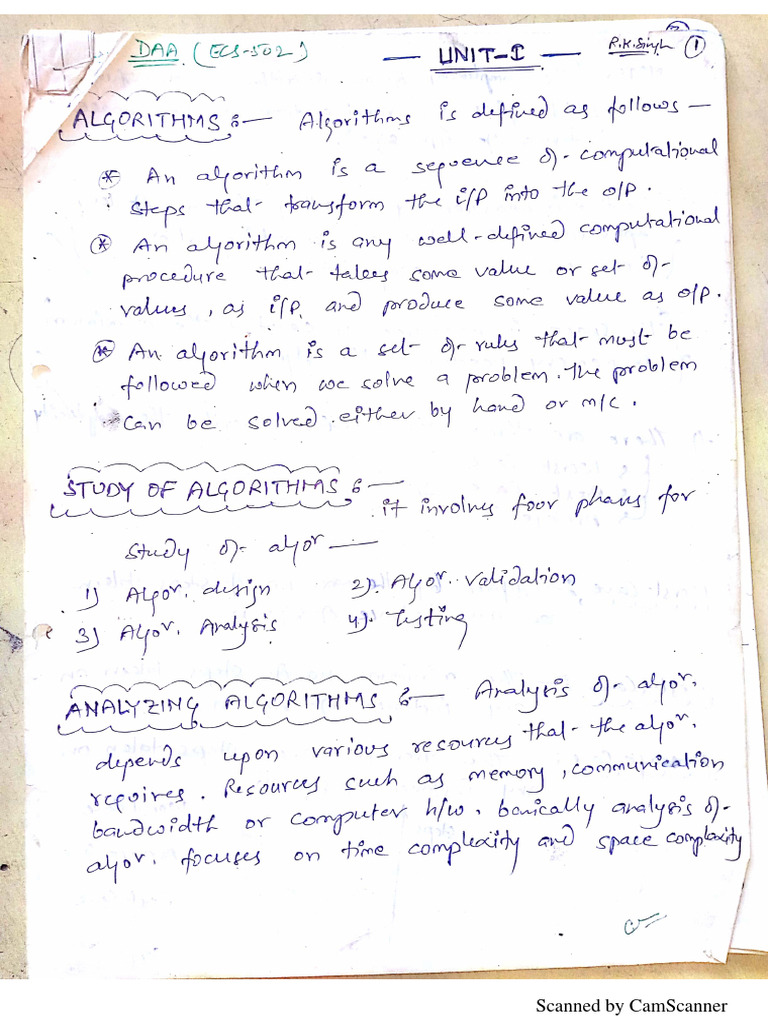 DAA (ECS-502) — UNIT-I — R.K.Singh 1
ALGORITHMS :— Algorithms is defined as follows —
* An algorithm is a sequence of computational
steps that transform the i/p into the o/p.
* An algorithm is any well-defined computational
procedure that takes some value or set of
values, as i/p and produce some value as o/p.
* An algorithm is a set of rules that must be
followed when we solve a problem. The problem
can be solved either by hand or m/c.
STUDY OF ALGORITHMS :—
it involves four phases for
study of algor —
1) Algor. design 2). Algor. validation
3) Algor. Analysis 4). Testing
ANALYZING ALGORITHMS :— Analysis of algor.
depends upon various resources that the algor.
requires. Resources such as memory, communication
bandwidth or computer h/w. basically analysis of
algor. focuses on time complexity and space complexity
Scanned by CamScanner